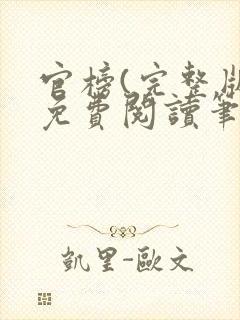 官榜(完整版
免費閱讀筆
凱里-歐文